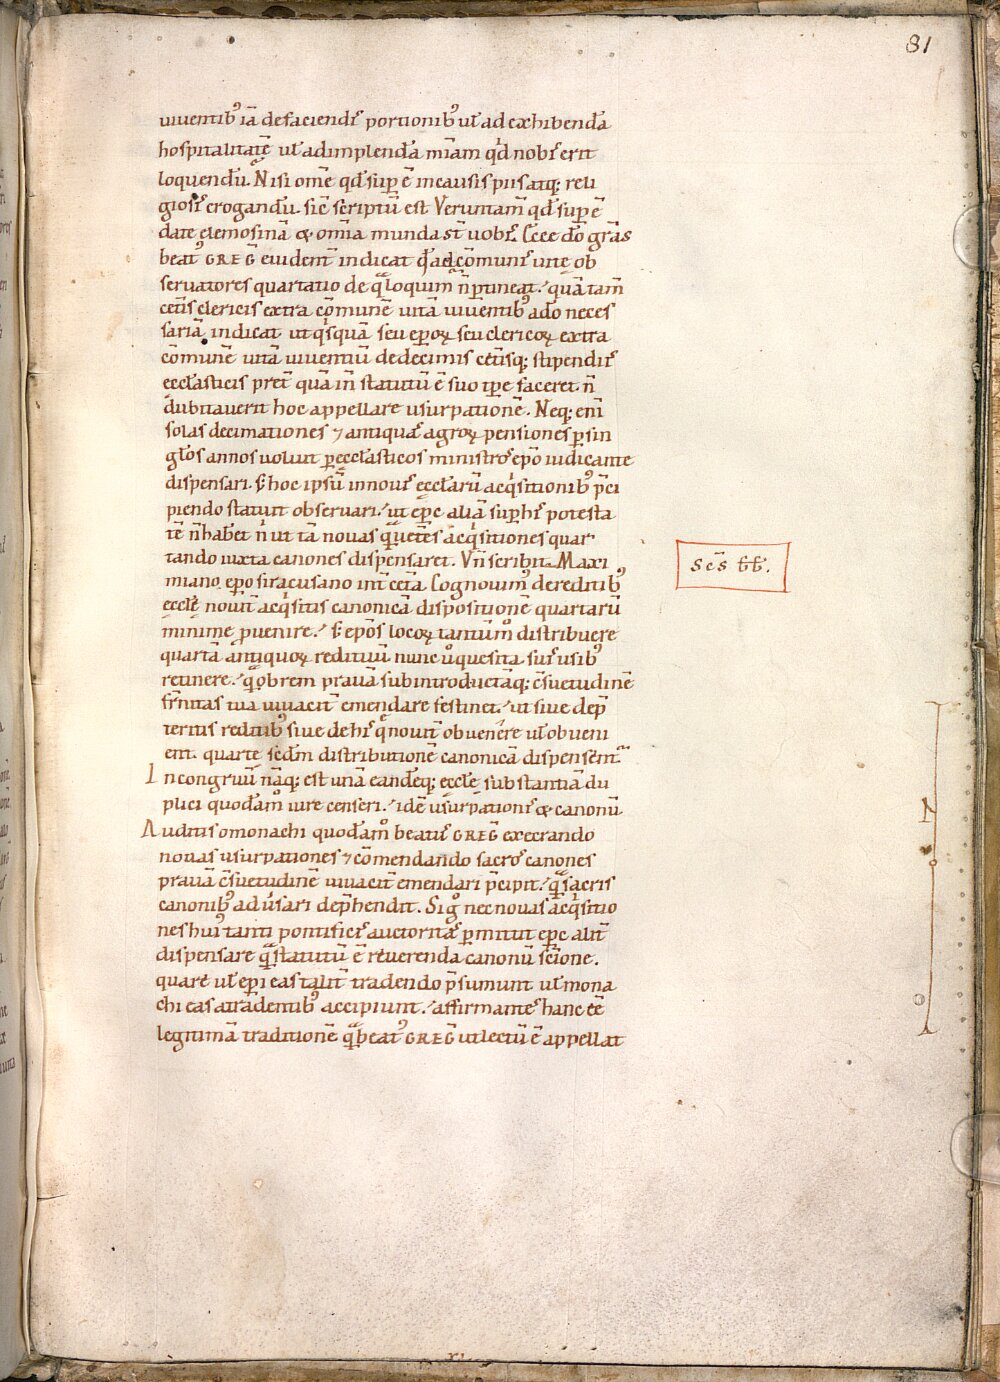 81
uiuentib᾽ iā de faciendis portionib᾽ ut̄ ad exhibenda
hospitalitatē ut̄ adimplendā miām qd̄ nob erit
loquendū. Nisi om̄e qd̄ sup ē incausis piis atq; reli
giosis erogandū. sic̄ scriptū est Veruntam̄ qd̄ sup ē
date elemosinā & om̄ia munda st̄ uob. Ecce do grās
beat᾽ GREG euident̄ indicat qd̄ ad cōmunis uite ob
seruatores quartatio de q̄ loquim̄ n̄ ptineat. quā tam̄
cet̄is clericis extra cōmunē uitā uiuentib᾽ adō neces
sariā indicat ut q̇squā seu epoꝝ seu clericoꝝ extra
cōmunē uitā uiuentiū de decimis cet̄isq; stipendiis
ecclasticis pret̄ quā in statutū ē suo tp̄e faceret n̄
dubitauerit hoc appellare usurpationē. Neq; eni
solas decimationes ⁊ antiquas agroꝝ pensiones p sin
glos annos uoluit p ecclasticos ministros epō iudicante
dispensari. s; hoc ipsū in nouis ecclarū acq̇sitionib᾽ pci
piendo statuit obseruari. ut epc aliā sup his potesta
tē n̄ habet n̄ ut tā nouas q̄ uetes acq̇sitiones quar
tando iuxta canones dispensaret. Vn̄ scribit Maxi
miano epo siracusano int̄ cet̄a. Cognouim᾽ de reditib᾽
eccle nouit̄ acq̇sitis canonicā dispositionē quartarū
minime puenire. s; epos locoꝝ tantūm distribuere
quartā antiquoꝝ redituū. nunc u̇ quesita suis usib᾽
retinere. q̄obrem prauā subintroductāq; c̄suetudinē
frn̄itas tua uiuacit̄ emendare festinet. ut siue dep
teritis reditib᾽ siue de his q̄ nouit̄ obuenēre ut̄ obueni
ent. quarte scdm distributionē canonicā dispensent̄
Incongruū nāq; est unā eandēq; eccle substantiā du
plici quodām iure censeri. idē usurpationis & canonū.
Auditis o monachi quodām beatus GREG execrando
nouas usurpationes ⁊ cōmendando sacros canones
prauā c̄suetudinē uiuacit̄ emendari p̄cipit. q̄ sacris
canonib᾽ aduersari dep̄hendit. Sig nec nouas acq̇sitio
nes hui᾽ tanti pontificis auctoritas pmittit epc alit̄
dispensare q̄ statutū ē reuerenda canonū sc̄ione.
quare ut̄ epi eas talit̄ tradendo p̄sumunt ut̄ mona
chi eas a tradentib᾽ accipiunt. affirmantes hanc eē
legitimā traditionē q̄ beat᾽ GREG ut lectū ē appellat
Scs
N